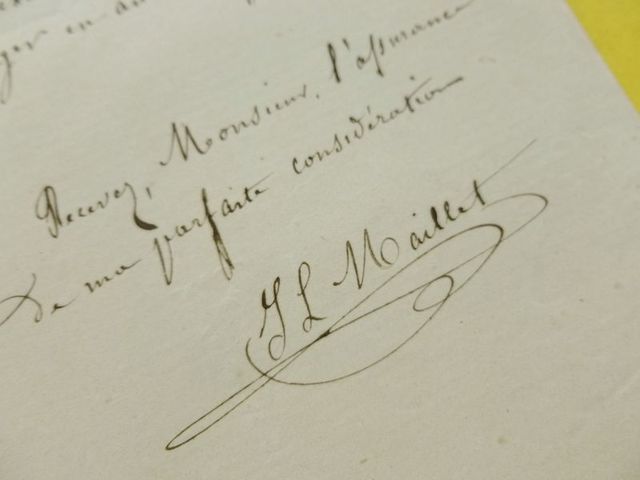 en
Recevez, Monsieur, l'assurance
de ma parfaite considération
J L Maillet